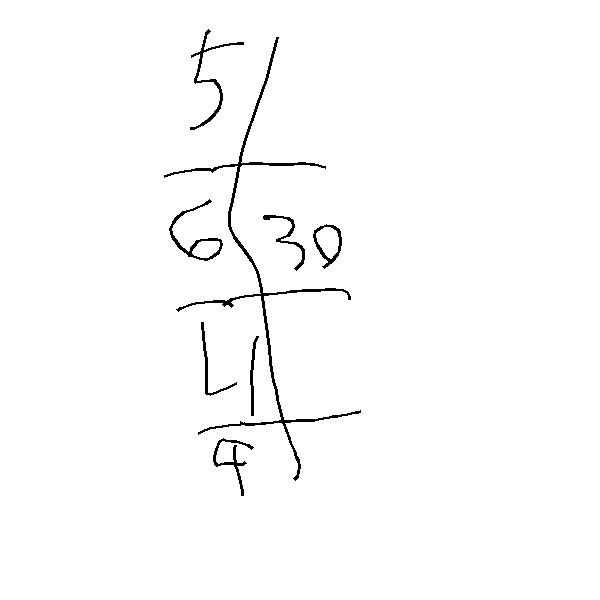 5
6 30
4
4